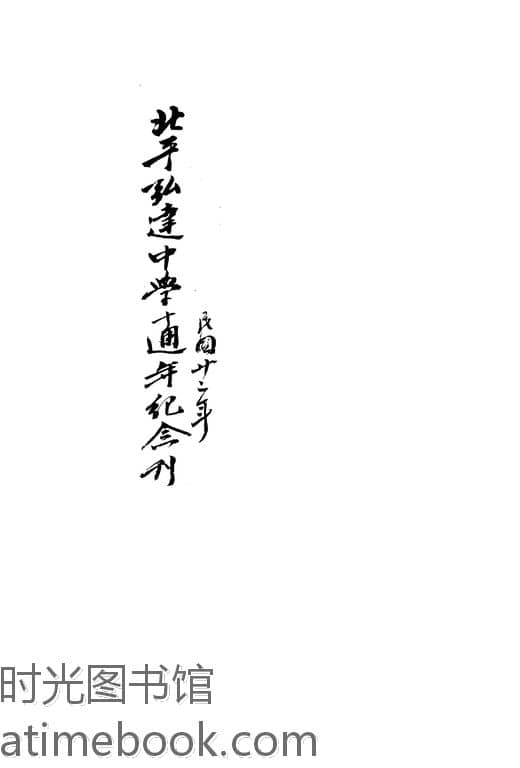 民國廿二年
北平弘達中學十週年紀念刊
时光图书馆
atimebook.com